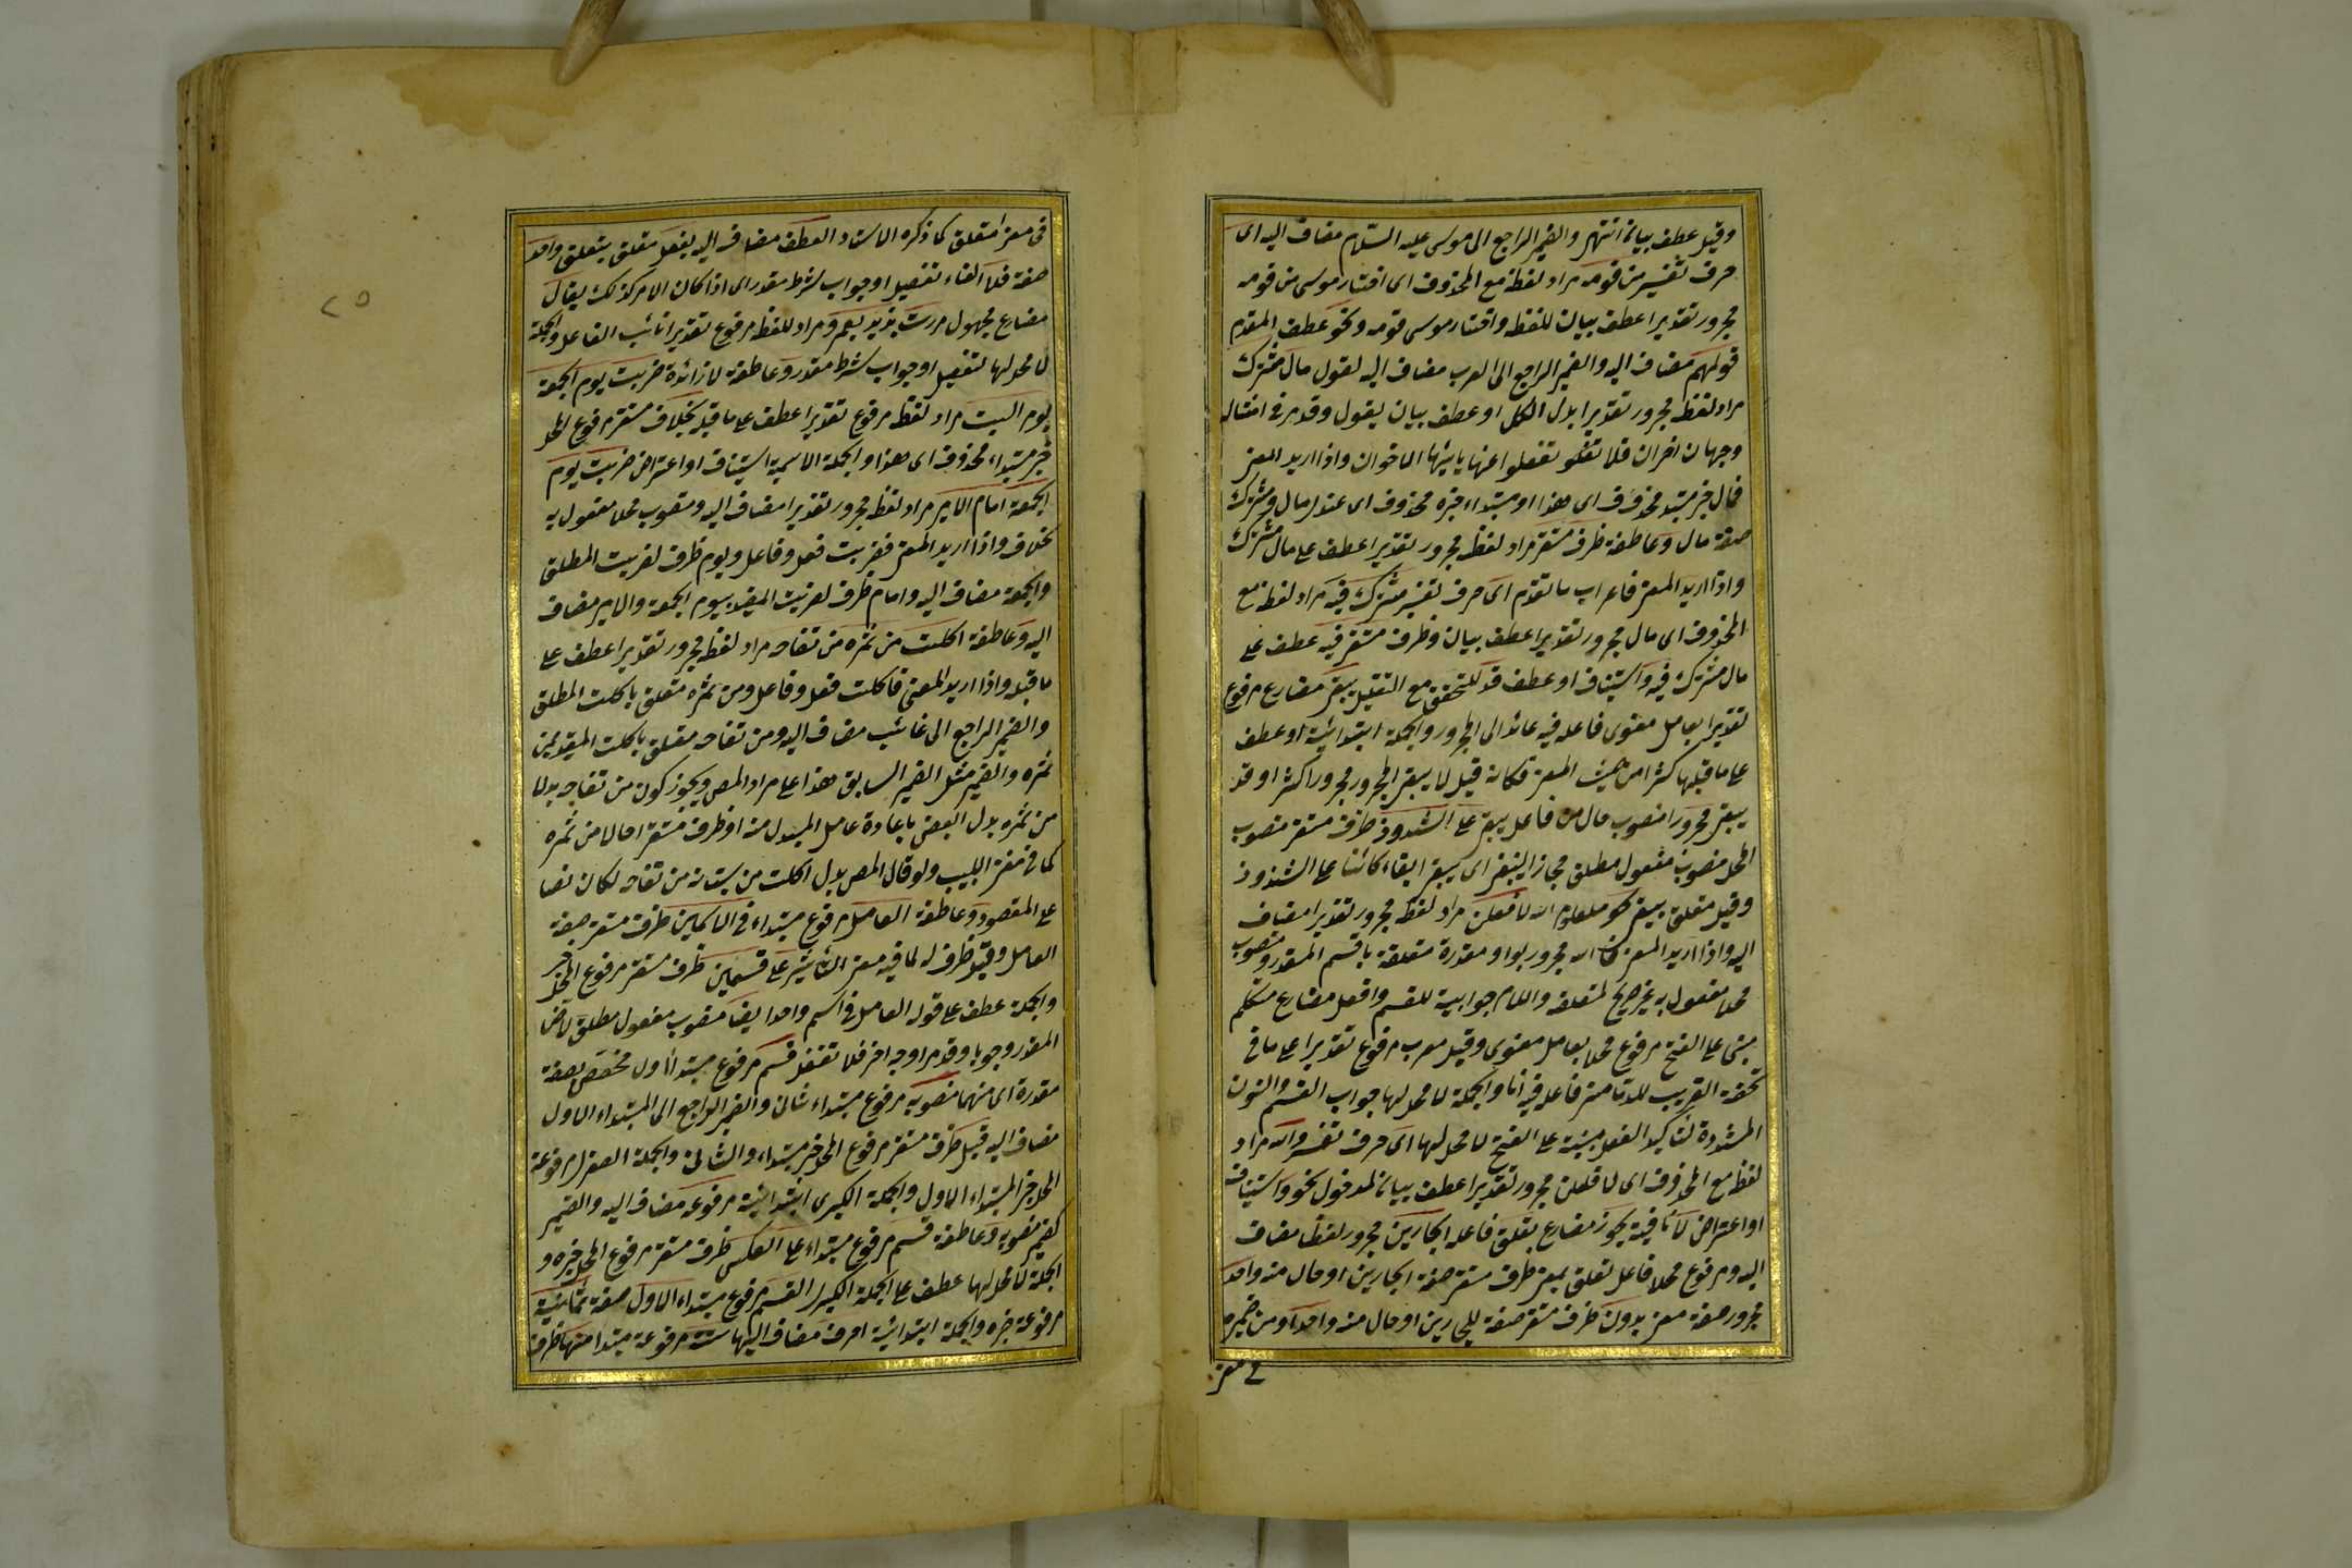 وقيل عطف بيان انتهى والضمير الراجع الى موسى عليه السلام مضاف اليه اى
حرف تفسير من قومه مراد لفظه مع المحذوف اى اختار موسى من قومه
مجرور تقديرا عطف بيان للفظه واختار موسى قومه ونحو عطف المقدم
قولهم مضاف اليه والضمير الراجع الى العرب مضاف اليه لقول مال مشترك
مراد لفظه مجرور تقديرا بدل الكل او عطف بيان لقول وقد مر فى امثاله
وجهان اخران فلا تغفلوا عنها يا ايها الاخوان واذا اريد المعنى
فمال خبر مبتدأ محذوف اى هذا او مبتداء خبره محذوف اى عندى مال ومشترك
صفة مال وعاطفة ظرف مستقر مراد لفظه مجرور تقديرا عطف على مال مشترك
واذا اريد المعنى فاعراب ما تقدم اى حرف تفسير مشترك فيه مراد لفظه مع
المحذوف اى مال مجرور تقديرا عطف بيان وظرف مستقر فيه عطف على
مال مشترك فيه واستيناف او عطف قد للتحقق مع التقليل يبقى مضارع مرفوع
تقديرا بعامل معنوى فاعله فيه عائد الى المجرور والجملة ابتدائية او عطف
على ما قبلها كثرا من حيث المعنى فكانه قيل لا يبقى المجرور مجرورا كثرا او قد
يبقى مجرورا منصوب حال من فاعل يبقى على الشذوذ ظرف مستقر منصوب
المحل منصوب مفعول مطلق مجازا ليبقى اى يبقى ابقاء كائنا على الشذوذ
وقيل متعلق بيبقى نحو معلوم الله لافعلن مراد لفظه مجرور تقديرا مضاف
اليه واذا اريد المعنى فالله مجرور بواو مقدرة متعلقة باقسم المقدر ومنصوب
محلا مفعول به غير صريح لمتعلقه واللام جوابية للقسم وافعل مضارع متكلم
مبنى على الفتح مرفوع محلا بعامل معنوى وقيل معرب مرفوع تقديرا على ما فى
تحفة الغريب للدمامينى فاعله فيه انا والجملة لا محل لها جواب القسم والنون
المشددة لتاكيد الفعل مبنية على الفتح لا محل لها اى حرف تفسير والله مراد
لفظه مع المحذوف اى لافعلن مجرور تقديرا عطف بيان لمدخول نحو واستيناف
او اعتراض لا نافية يجوز مضارع تعلق فاعله الجارين مجرور لفظا مضاف
اليه ومرفوع محلا فاعل لتعلق بمعنى ظرف مستقر صفة الجارين او حال منه واحد
مجرور صفة معنى بدون ظرف مستقر صفة للجارين او حال منه واحد او من ضميره
فى معنى
فى معنى متعلق كما ذكره الاستاد العطف مضاف اليه بفعل متعلق بتعلق واحد
صفة فلا الفاء تفصيل او جواب شرط مقدر اى اذا كان الامر كذلك يقال
مضارع مجهول مررت بزيد بعمرو مراد للفظه مرفوع تقديرا نائب الفاعل والجملة
لا محل لها تفصيل او جواب شرط مقدر وعاطفة لا زائدة ضربت يوم الجمعة
يوم السبت مراد لفظه مرفوع تقديرا عطف على ما قبله بخلاف مستقر مرفوع المحل
خبر مبتداء محذوف اى هذا والجملة الاسمية استيناف او اعتراض ضربت يوم
الجمعة امام الامير مراد لفظه مجرور تقديرا مضاف اليه ومنصوب محلا مفعول به
بخلاف واذا اريد المعنى فضربت فعل وفاعل ويوم ظرف لضربت المطلق
والجمعة مضاف اليه وامام ظرف لضربت المقيد بيوم الجمعة والامير مضاف
اليه وعاطفة اكلت من ثمره من تفاحه مراد لفظه مجرور تقديرا عطف على
ما قبله واذا اريد المعنى فاكلت فعل وفاعل ومن ثمره متعلق باكلت المطلق
والضمير الراجع الى غائب مضاف اليه ومن تفاحه متعلق باكلت المقيد بمن
ثمره والضمير مثل الضمير السابق هذا على مراد المص ويجوز كون من تفاحه بدلا
من ثمره بدل البعض باعادة عامل المبدل منه او ظرف مستقر احالا من ثمره
كما فى مغنى اللبيب ولو قال المص بدل اكلت من بستانه من تفاحه لكان نصا
على المقصود وعاطفة العامل مرفوع مبتداء فى الاسمين ظرف مستقر صفة
العامل وقيل ظرف له لما فيه معنى التاثير على قسمين ظرف مستقر مرفوع المحل خبر
والجملة عطف على قوله العامل فى اسم واحد ايضا منصوب مفعول مطلق لاض
المقدر وجوبا وقد مر اوجه اخر فلا تغفل قسم مرفوع مبتدا اول مخصص بصفة
مقدرة اى منهما منصوبه مرفوع مبتداء ثان والضمير الراجع الى المبتداء الاول
مضاف اليه قبل ظرف مستقر مرفوع المحل خبر مبتداء والثانى والجملة الصغرى مرفوعة
المحل خبر المبتداء الاول والجملة الكبرى ابتدائية مرفوعه مضاف اليه والضمير
كضمير منصوبه وعاطفة قسم مرفوع مبتداء على العكس ظرف مستقر مرفوع المحل خبره و
الجملة لا محل لها عطف على الجملة الكبرى القسم مرفوع مبتداء الاول صفة ثمانية
مرفوعة خبره والجملة ابتدائية احرف مضاف اليها ستة مرفوعة مبتدا منها ظرف
٢٥